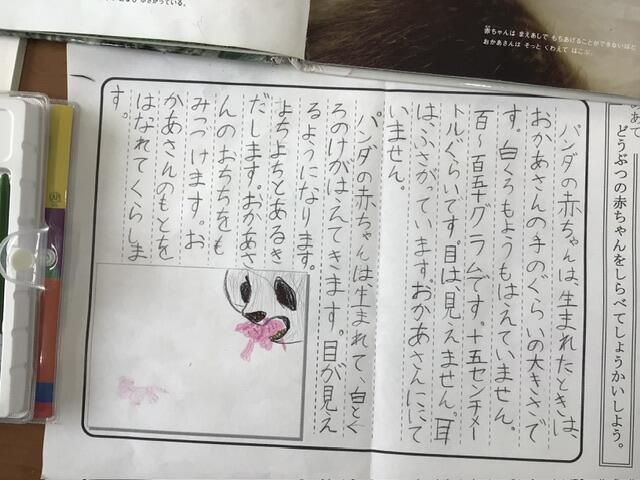 赤ちゃんは まえあしで もちあげることができないほど
おかあさんは そっと くわえて はこぶ。
あ
どうぶつの赤ちゃんをしらべてしょうかいしよう。
パンダの赤ちゃんは、生まれたときは、
おかあさんの手のぐらいの大きさで
す。白くろもようもはえていません。
百～百五十グラムです。十五センチメー
トルぐらいです。目は、見えません。耳
は、ふさがっています。おかあさんににて
いません。
パンダの赤ちゃんは、生まれて 白とく
ろのけがはえてきます。目が見え
るようになります。
よちよちとあるき
だします。おかあさ
んのおちちをも
みつづけます。お
かあさんのもとを
はなれてくらしま
す。